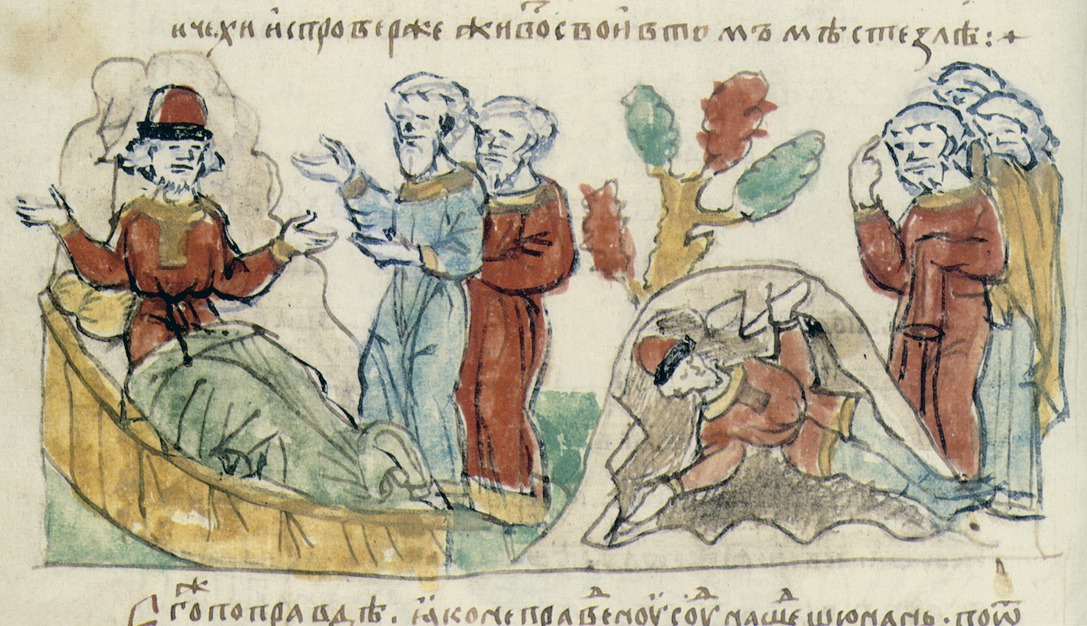 и чехи испроверже живоⷮ свои в томъ мѣсте злѣ : +
Егоⷤ по правдѣ . ꙗко неправеⷣноу соуⷣ нашеⷣшю на нь · по ѿ